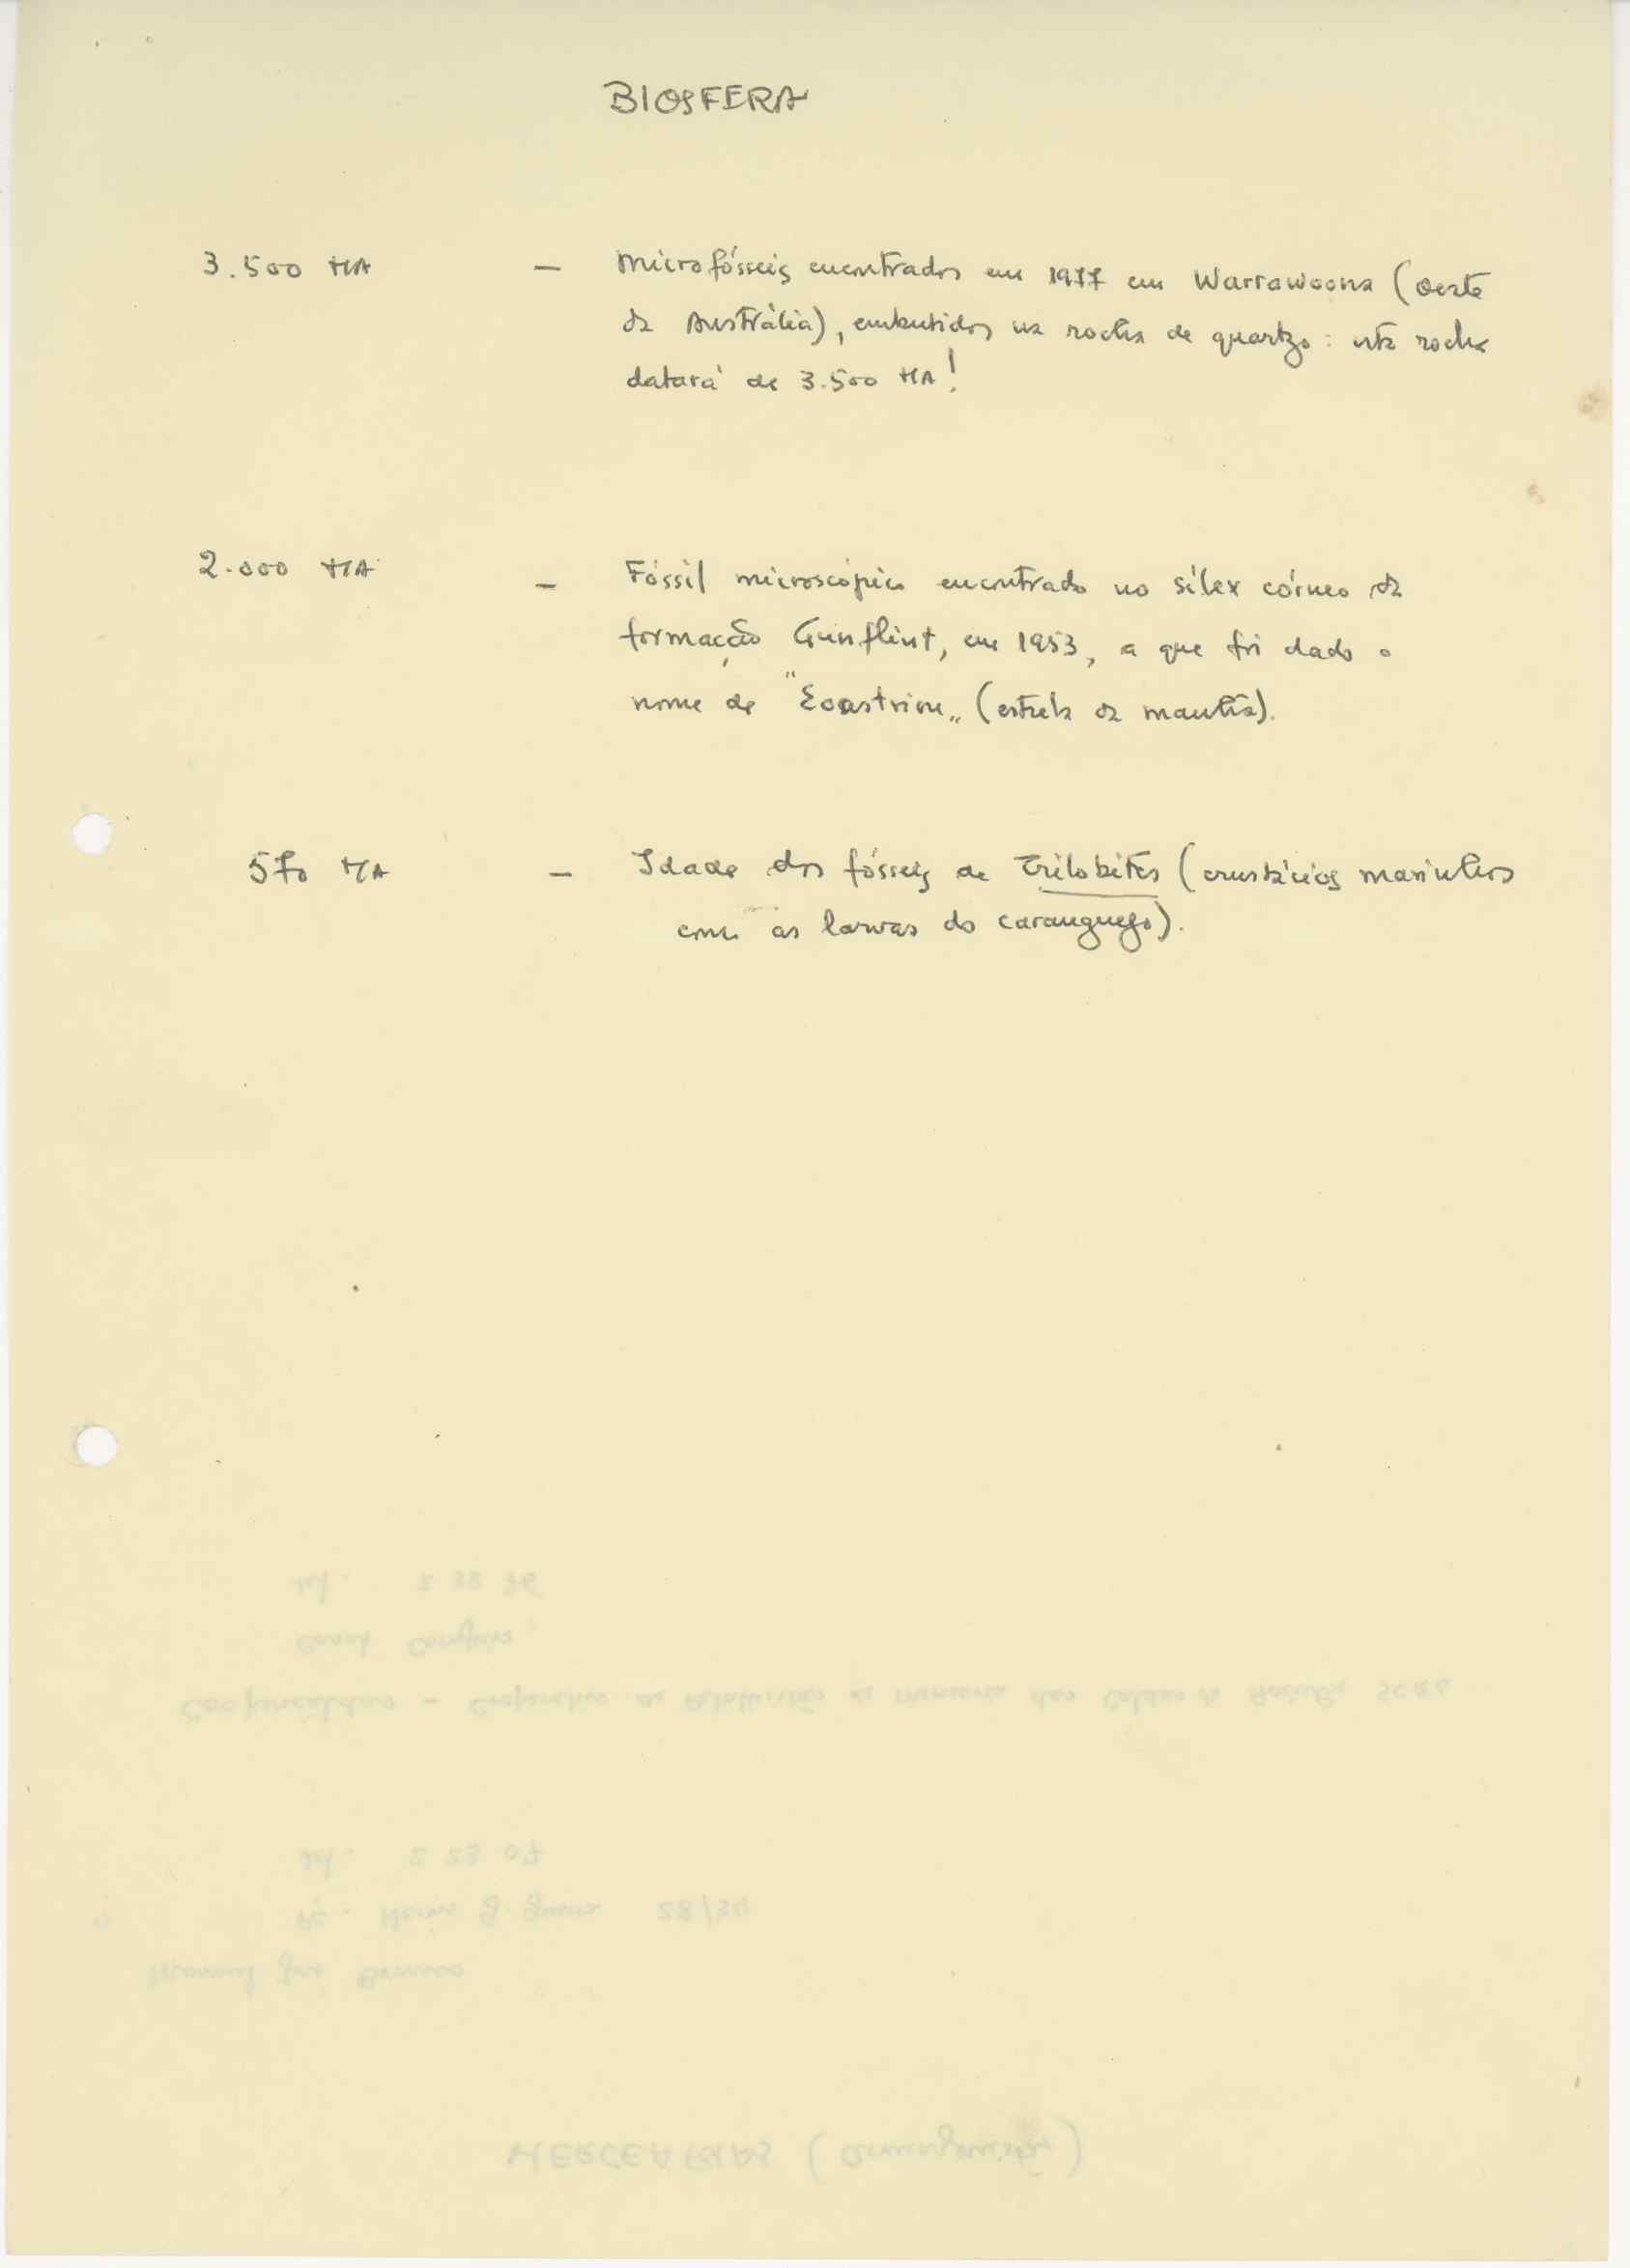 BIOSFERA
3.500 MA — Microfósseis encontrados em 1977 em Warrawoona (Oeste
da Austrália), embutidos na rocha de quartzo: esta rocha
datará de 3.500 MA!
2.000 MA — Fóssil microscópico encontrado no sílex córneo da
formação Gunflint, em 1953, a que foi dado o
nome de "Eoastrion" (estrela da manhã).
570 MA — Idade dos fósseis de Trilobites (crustácios marinhos
como as larvas do caranguejo).